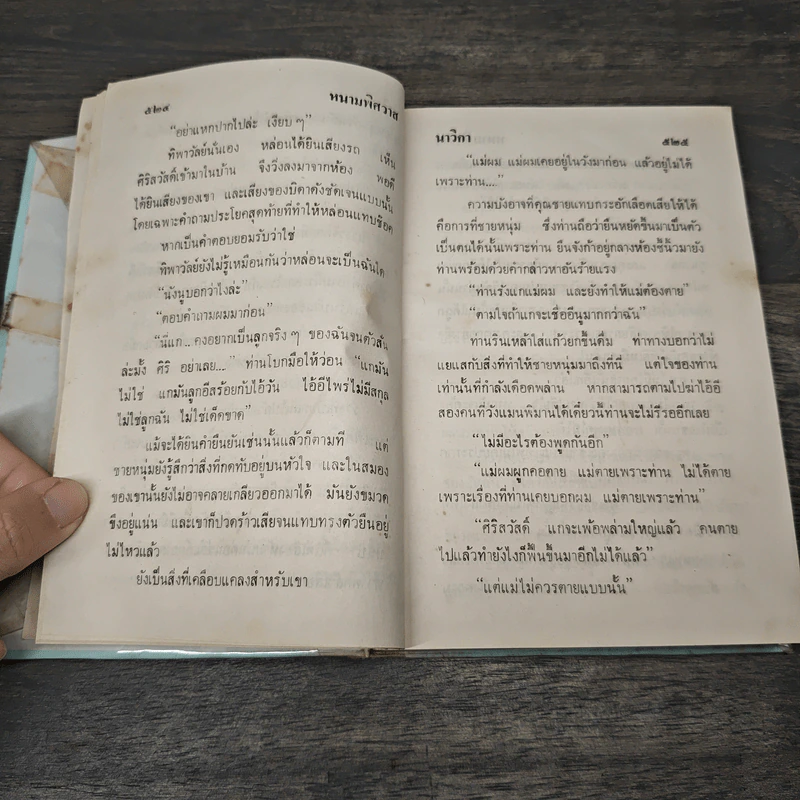 ๕๒๔
หนามพิศวาส
"อย่าแหกปากไปล่ะ เงียบ ๆ"
ทิพาวัลย์นั่นเอง หล่อนได้ยินเสียงรถ เห็น
ศิริสวัสดิ์เข้ามาในบ้าน จึงวิ่งลงมาจากห้อง พอดี
ได้ยินเสียงของเขา และเสียงของบิดาดังชัดเจนแบบนั้น
โดยเฉพาะคำถามประโยคสุดท้ายที่ทำให้หล่อนแทบช็อค
หากเป็นคำตอบยอมรับว่าใช่
ทิพาวัลย์ยังไม่รู้เหมือนกันว่าหล่อนจะเป็นฉันใด
"นังนูบอกว่าไงล่ะ"
"ตอบคำถามผมมาก่อน"
"นี่แก... คงอยากเป็นลูกจริง ๆ ของฉันจนตัวสั่น
ล่ะมั้ง ศิริ อย่าเลย..." ท่านโบกมือให้ว่อน "แกมัน
ไม่ใช่ แกมันลูกอีสร้อยกับไอ้วัน ไอ้อีไพร่ไม่มีสกุล
ไม่ใช่ลูกฉัน ไม่ใช่เด็ดขาด"
แม้จะได้ยินคำยืนยันเช่นนั้นแล้วก็ตามที แต่
ชายหนุ่มยังรู้สึกว่าสิ่งที่กดทับอยู่บนหัวใจ และในสมอง
ของเขานั้นยังไม่อาจคลายเกลียวออกมาได้ มันยังขมวด
ขึงอยู่แน่น และเขาก็ปวดร้าวเสียจนแทบทรงตัวยืนอยู่
ไม่ไหวแล้ว
ยังเป็นสิ่งที่คลือบแคลงสำหรับเขา
นาวิกา
๕๒๕
"แม่ผม แม่ผมเคยอยู่ในวังมาก่อน แล้วอยู่ไม่ได้
เพราะท่าน...."
ความบังอาจที่คุณชายแทบกระอักเลือดเสียให้ได้
คือการที่ชายหนุ่ม ซึ่งท่านถือว่ายืนหยัดขึ้นมาเป็นตัว
เป็นตนได้นั้นเพราะท่าน ยืนจังก้าอยู่กลางห้องชี้นิ้วมายัง
ท่านพร้อมด้วยคำกล่าวหาอันร้ายแรง
"ท่านรังแกแม่ผม และยังทำให้แม่ต้องตาย"
"ตามใจถ้าแกจะเชื่ออีนูมากกว่าฉัน"
ท่านรินเหล้าใส่แก้วยกขึ้นดื่ม ท่าทางบอกว่าไม่
แยแสกับสิ่งที่ทำให้ชายหนุ่มมาถึงที่นี่ แต่ใจของท่าน
เท่านั้นที่กำลังเดือดพล่าน หากสามารถตามไปฆ่าไอ้อี
สองคนที่วังแมนพิมานได้เดี๋ยวนี้ท่านจะไม่รีรออีกเลย
"ไม่มีอะไรต้องพูดกันอีก"
"แม่ผมผูกคอตาย แม่ตายเพราะท่าน ไม่ได้ตาย
เพราะเรื่องที่ท่านเคยบอกผม แม่ตายเพราะท่าน"
"ศิริสวัสดิ์ แกจะเพ้อพล่ามใหญ่แล้ว คนตาย
ไปแล้วทำยังไงก็ฟื้นขึ้นมาอีกไม่ได้แล้ว"
"แต่แม่ไม่ควรตายแบบนั้น"